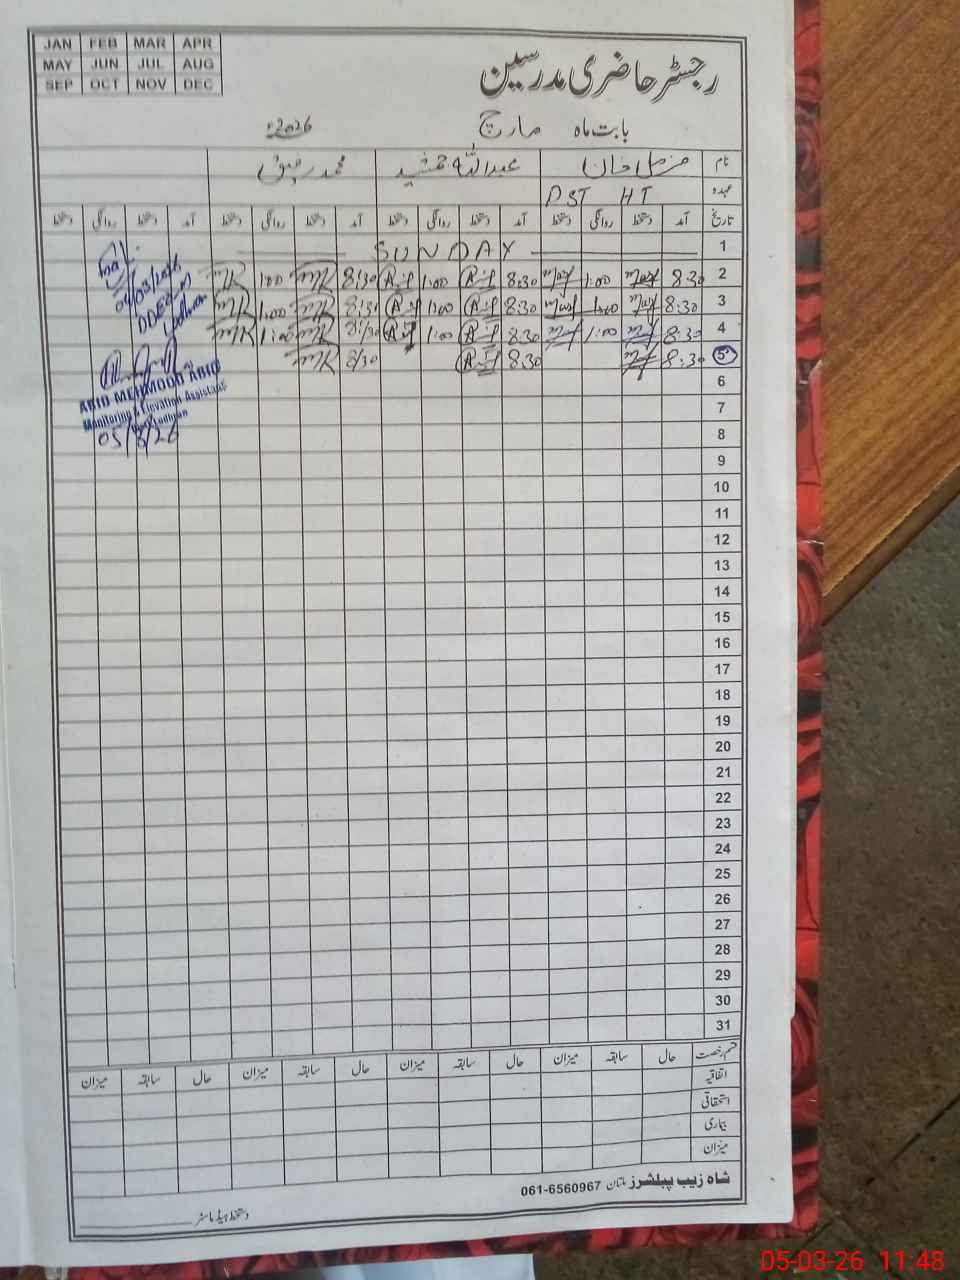 JAN FEB MAR APR
MAY JUN JUL AUG
SEP OCT NOV DEC
رجسٹر حاضری مدرسین
بابت ماہ مارچ 2026ء
نام مزمل خان عبداللہ جمشید محمد رفیق
عہدہ PST HT
تاریخ آمد دستخط روانگی دستخط آمد دستخط روانگی دستخط آمد دستخط روانگی دستخط آمد دستخط روانگی دستخط
1 SUNDAY
2 8:30 1:00 8:30 1:00 8:30 1:00
3 8:30 1:00 8:30 1:00 8:30 1:00
4 8:30 1:00 8:30 1:00 8:30 1:00
5 8:30 8:30 8:30
04/03/2026
Lodhran
ABID MEHMOOD ABID
Monitoring & Elevation Assistant
Lodhran
05/3/26
6
7
8
9
10
11
12
13
14
15
16
17
18
19
20
21
22
23
24
25
26
27
28
29
30
31
قسم رخصت حال سابقہ میزان حال سابقہ میزان حال سابقہ میزان حال سابقہ میزان
اتفاقیہ
استحقاقی
بیماری
میزان
شاہ زیب پبلشرز ملتان 061-6560967
دستخط ہیڈ ماسٹر
05-03-26 11:48